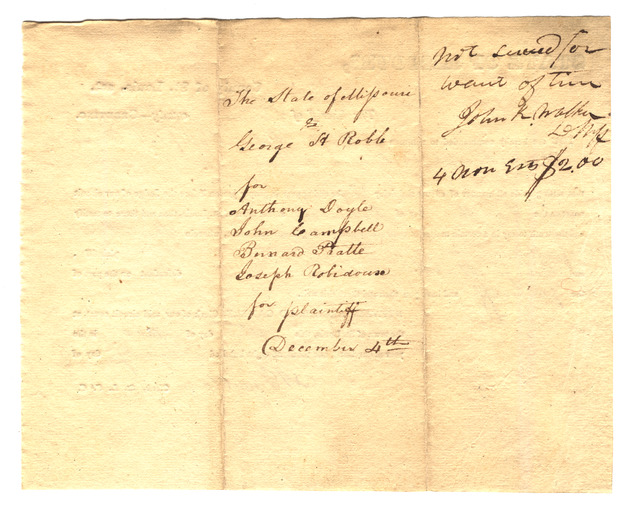 The State of Missouri
to
George H Roble
for
Anthony Doyle
John Campbell
Bernard Pratte
Joseph Robidouse
for plaintiff
December 4th
Not served for
want of time
John K. Walker
4 non Est $2.00